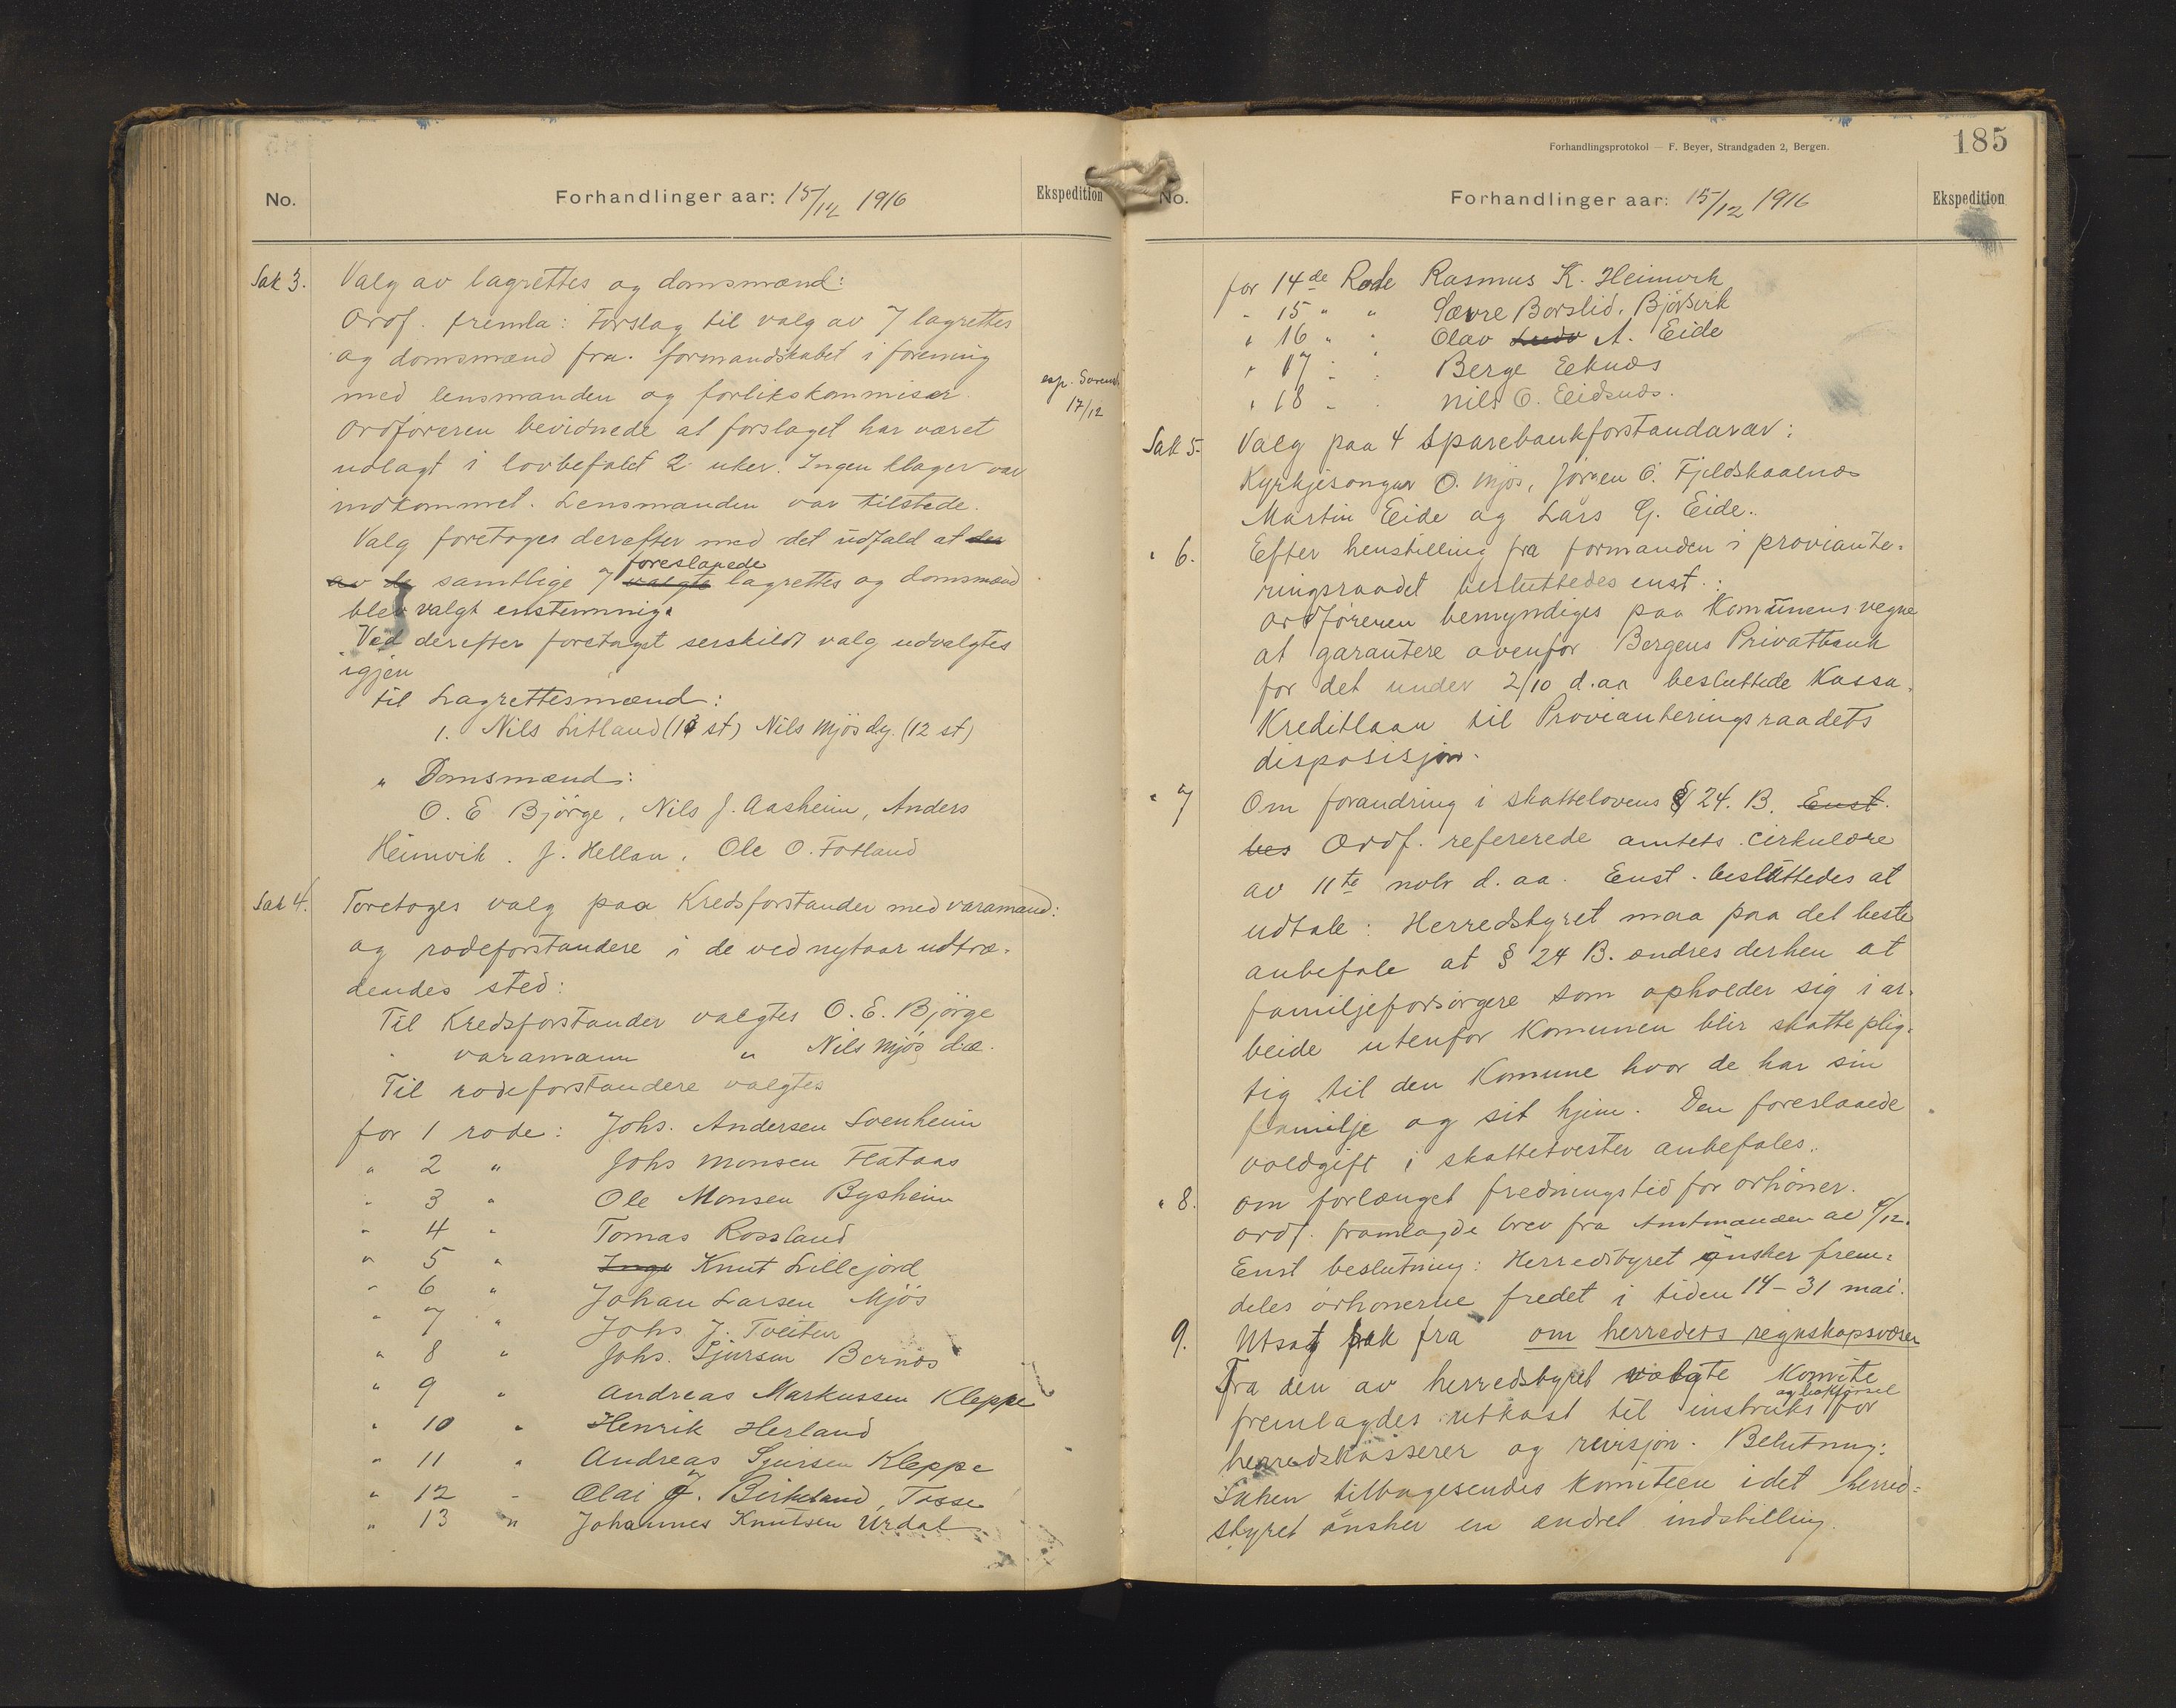 No.
Forhandlinger aar: 15/12 1916
Ekspedition
Sak 3.
Valg av lagrettes og domsmænd:
Ordf. fremla: Forslag til valg av 7 lagrettes
og domsmænd fra formandskabet i forening
med lensmanden og forlikskommiser.
Ordføreren bevidnede at forslaget har været
udlagt i lovbefalet 2 uker. Ingen klager var
indkommet. Lensmanden var tilstede.
17/12
Valg foretoges derefter med det udfald at der
av de samtlige 7 valgte foreslaaede lagrettes og domsmænd
blev valgt enstemmig.
Ved derefter foretaget serskildt valg udvalgtes
igjen
til Lagrettesmænd:
1. Nils Litland (13 st) Nils Mjös dy. (12 st)
" Domsmænd:
O. E. Björge, Nils J. Aasheim, Anders
Heimvik. J. Hellan, Ole O. Fotland
Sak 4.
Foretoges valg paa Kredsforstander med varamand:
og rodeforstandere i de ved nytaar udtræ-
dendes sted:
Til Kredsforstander valgtes O. E. Björge
" varamann " Nils Mjös d.æ.
Til rodeforstandere valgtes
for 1 rode: Johs. Andersen Soenheim
" 2 " Johs Monsen Flataas
" 3 " Ole Monsen Bysheim
" 4 " Tomas Rossland
" 5 " Inge Knut Lillejord
" 6 " Johan Larsen Mjös
" 7 " Johs J. Tveiten
" 8 " Johs. Sjursen Bernes
" 9 " Andreas Markussen Kleppe
" 10 " Henrik Herland
" 11 " Andreas Sjursen Kleppe
" 12 " Olai J. Birkeland, Tosse
" 13 " Johannes Knutsen Urdal
Forhandlingsprotokol — F. Beyer, Strandgaden 2, Bergen.
185
No.
Forhandlinger aar: 15/12 1916
Ekspedition
for 14de Rode Rasmus K. Heimvik
" 15 " " Sævre Borslid, Bjørsvik
" 16 " " Olav A. Eide
" 17 " " Berge Eeknes
" 18 " " Nils O. Eidsnes.
Sak 5.
Valg paa 4 Sparebankforstandarar:
Kyrkjesongar O. Mjös, Jörgen O. Fjeldskaalnes
Martin Eide og Lars G. Eide.
" 6.
Efter henstilling fra formanden i proviante-
ringsraadet besluttedes enst.:
ordföreren bemyndiges paa Komunens vegne
at garantere ovenfor Bergens Privatbank
for det under 2/10 d.aa besluttede Kassa-
Kreditlaan til Provianteringsraadets
disposisjon.
" 7
Om forandring i skattelovens § 24. B. Enst.
bes Ordf. refererede amtets cirkulære
av 11te novbr d. aa. Enst. besluttedes at
udtale: Herredstyret maa paa det beste
anbefale at § 24 B. endres derhen at
familjeforsörgere som opholder sig i ar-
beide utenfor Komunen blir skatteplig-
tig til den Komune hvor de har sin
familje og sit hjem. Den foreslaaede
voldgift i skattetvester anbefales.
" 8.
Om forlænget fredningstid for orhöner.
ordf. framlagde brev fra Amtmanden av /12.
Enst beslutning: Herredstyret ønsker frem-
deles orhonerne fredet i tiden 14 - 31 mai.
9.
Utsat sak fra om herredets regnskapsvæsen
Fra den av herredstyret valgte Komite
fremlagdes utkast til instruks og bokførsel for
herredskasserer og revisjon. Belutning:
Saken tilbagesendes komiteen idet herred-
styret önsker en ændret indstilling.